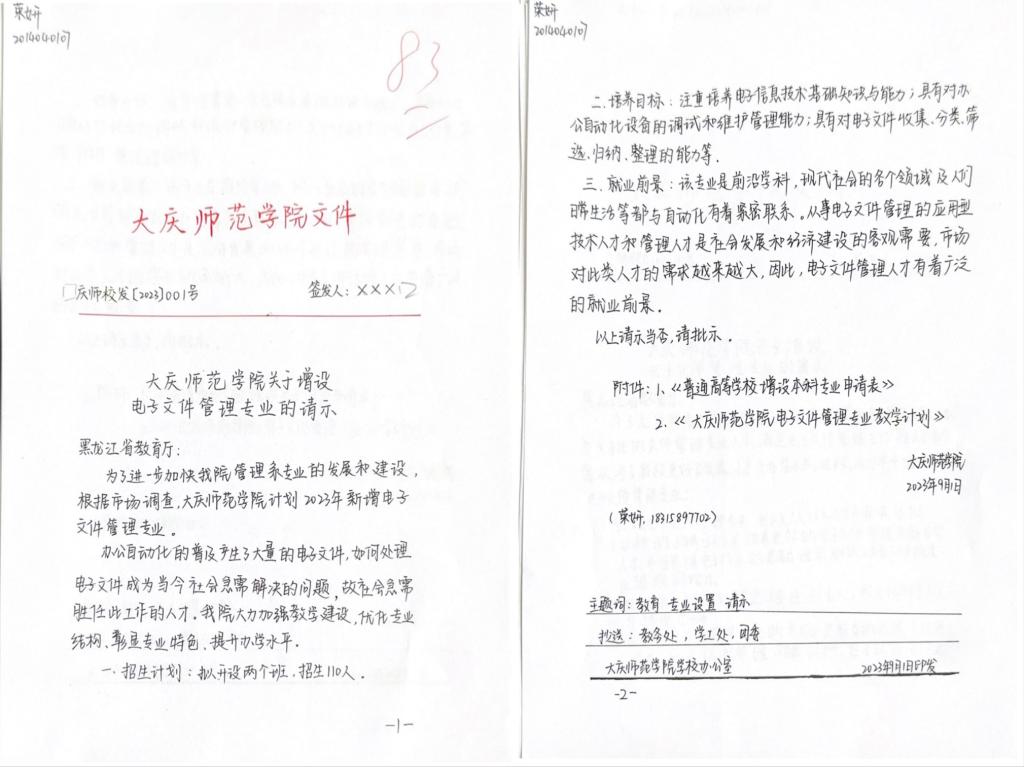 荣妍
2014040107
83
大庆师范学院文件
庆师校发[2023]001号 签发人:×××
大庆师范学院关于增设
电子文件管理专业的请示
黑龙江省教育厅:
为了进一步加快我院管理系专业的发展和建设,
根据市场调查,大庆师范学院计划2023年新增电子
文件管理专业。
办公自动化的普及产生了大量的电子文件,如何处理
电子文件成为当今社会急需解决的问题,故社会急需
胜任此工作的人才。我院大力加强教学建设,优化专业
结构、彰显专业特色、提升办学水平.
一.招生计划:拟开设两个班,招生110人.
-1-
荣妍
2014040107
二.培养目标:注重培养电子信息技术基础知识与能力;具有对办
公自动化设备的调试和维护管理能力;具有对电子文件收集、分类、筛
选、归纳、整理的能力等.
三.就业前景:该专业是前沿学科,现代社会的各个领域及人们
日常生活等都与自动化有着紧密联系。从事电子文件管理的应用型
技术人才和管理人才是社会发展和经济建设的客观需要,市场
对此类人才的需求越来越大,因此,电子文件管理人才有着广泛
的就业前景.
以上请示当否,请批示.
附件:1.《普通高等学校增设本科专业申请表》
2.《大庆师范学院电子文件管理专业教学计划》
大庆师范学院
2023年9月1日
(荣妍,18315897702)
主题词:教育 专业设置 请示
抄送:教务处,学工处,团委
大庆师范学院学校办公室 2023年9月1日印发
-2-